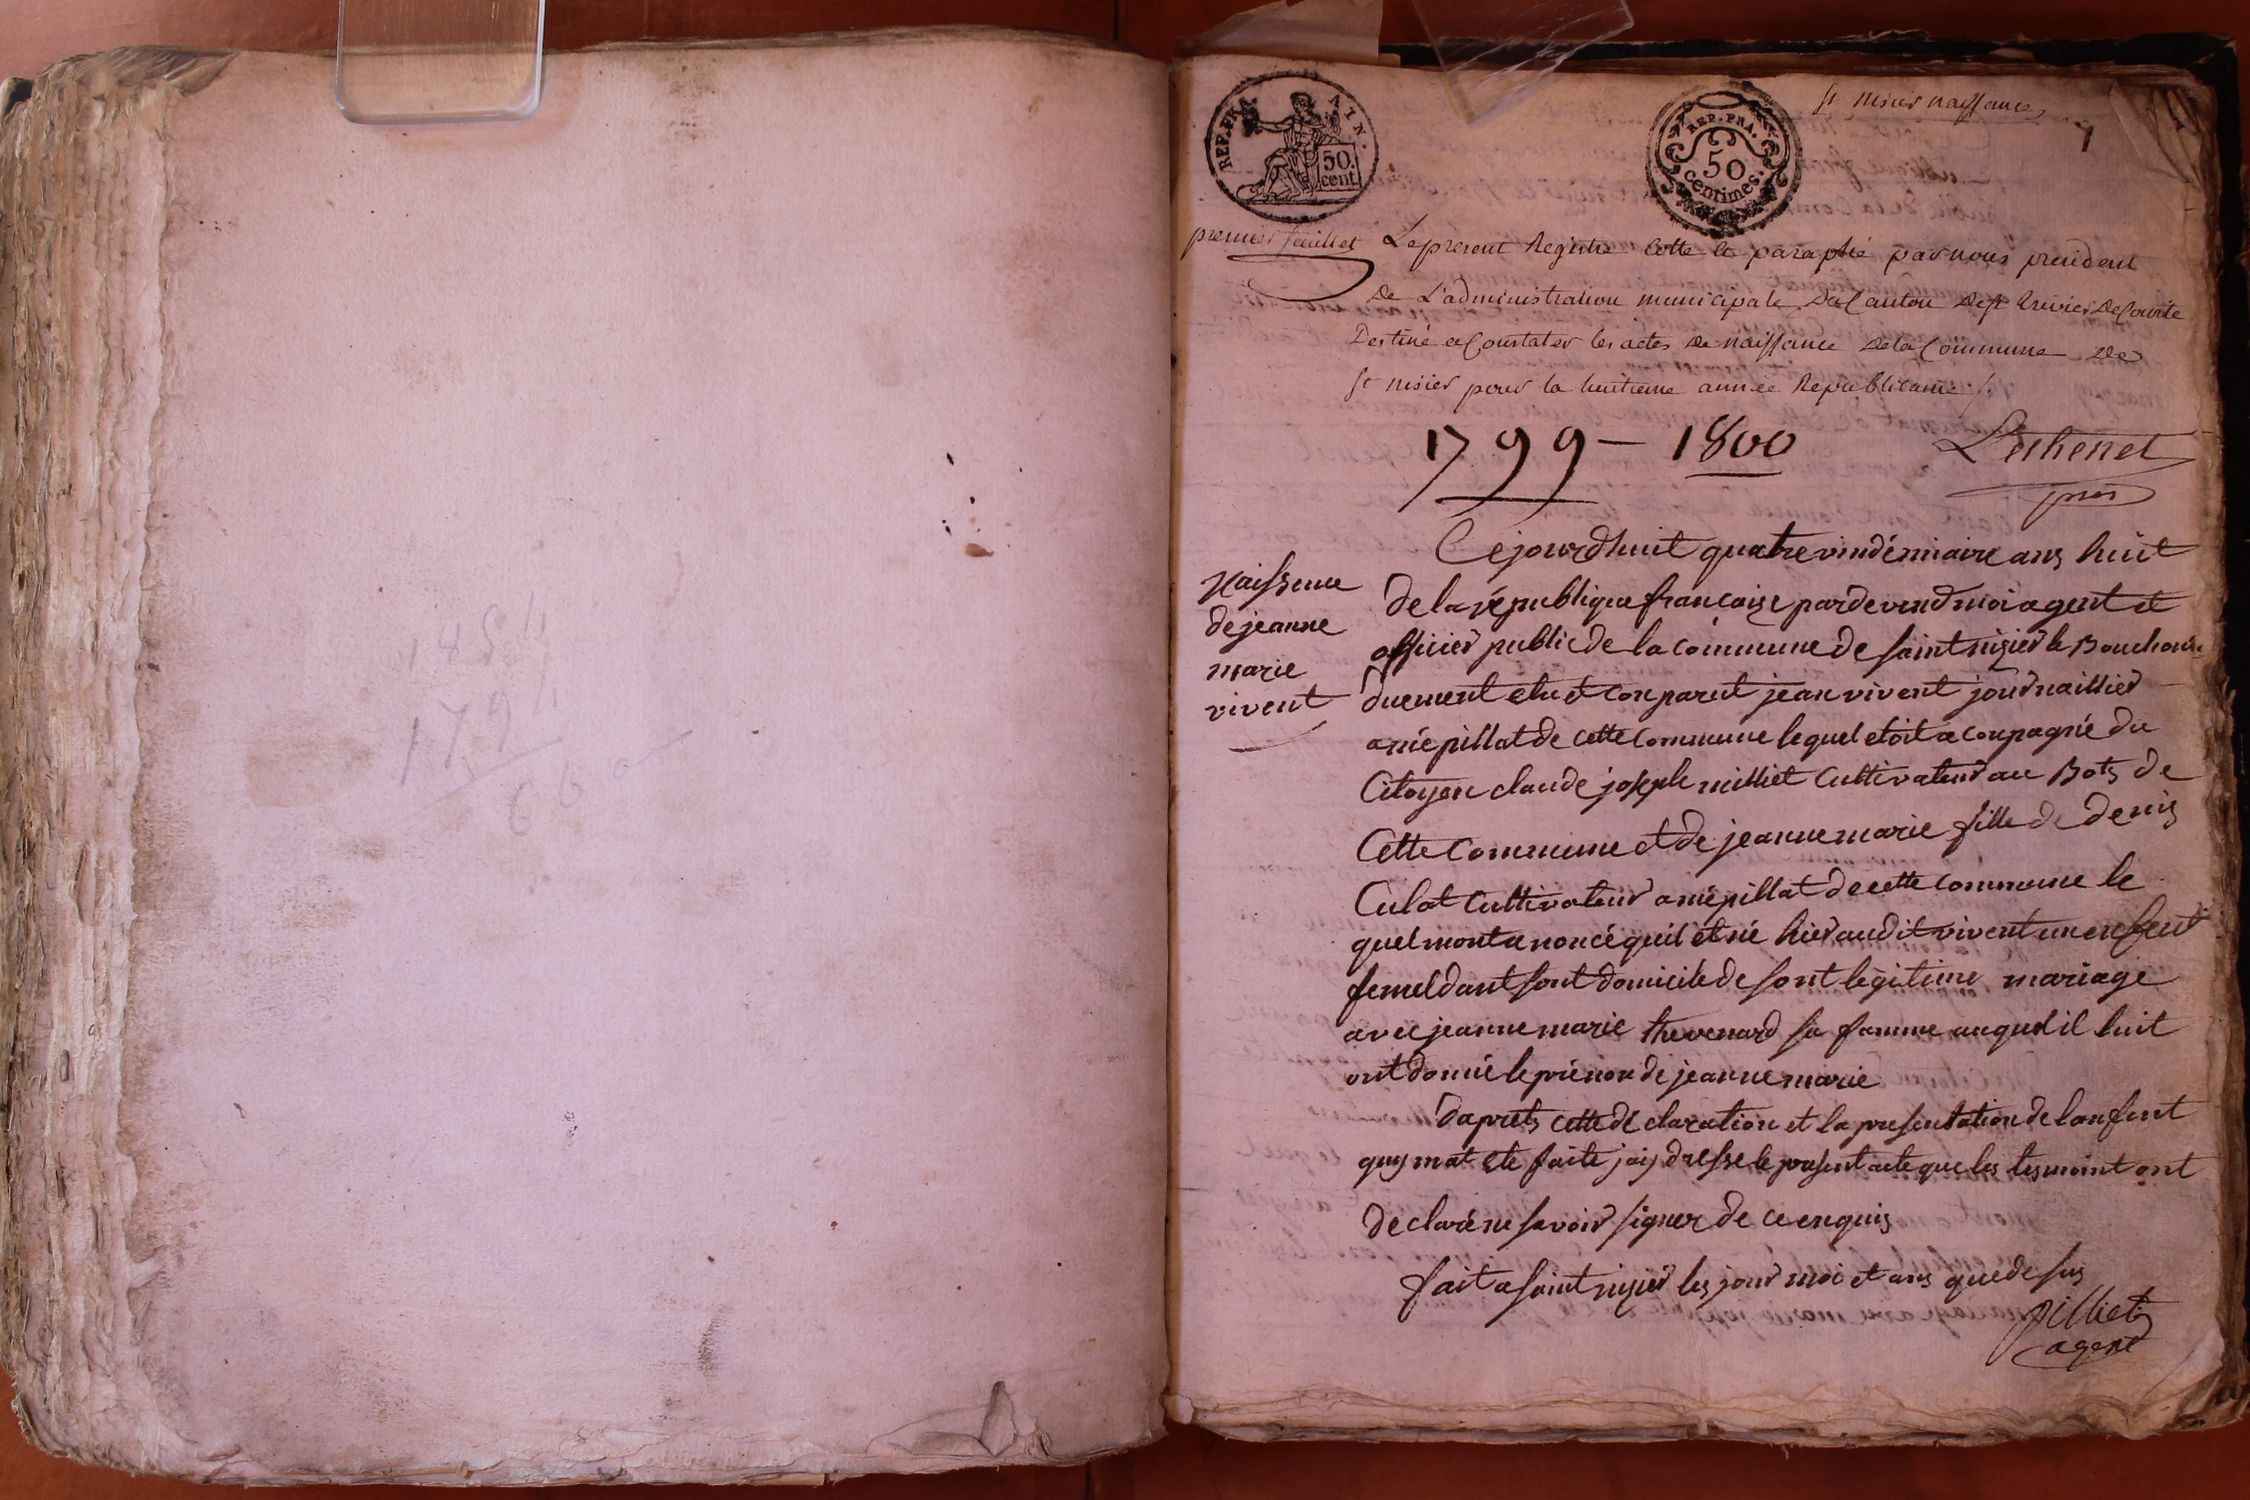 1854
1794
60
REP. FRA
AIN.
50.
cent.
REP. FRA.
50
centimes.
St nisier naissances
1
premier feuillet
Le present Registre Cotté et paraphé par nous president
de L'administration municipale du Canton de St trivier de Courte
Destiné a Constater les actes de naissance de la Commune de
St nisier pour la huitieme année Republicaine ./.
1799 - 1800
pres
Naissence
de jeanne
marie
vivent
Cejourdhuit quatre vindémiaire ans huit
de la république francaise pardevend moi agent et
officier public de la commune de saint nizier le Bouchoux
duement elu et conparut jean vivent journaillier
a niépillat de cette commune lequel etoit acoupagné du
Citoyen claude joseph milliet Cultivateur au Bots de
Cette Commune et de jeanne marie fille de denis
Culat Cultivateur a niépillat de cette commune le
quel mont anoncé quil et né hier audit vivent un enfent
femel dant sont domicile de sont legitime mariage
avec jeanne marie thevenard sa famme auquel il luit
ont donné le prénon de jeanne marie
daprets cette déclaration et la presentation de lanfent
quy mat ete faite jaij dresse le present acte que les tesmoint ont
declaré ne savoir signer de ce enquis
fait a saint nizier les jour moi et ans que de sus
pilliet
agent